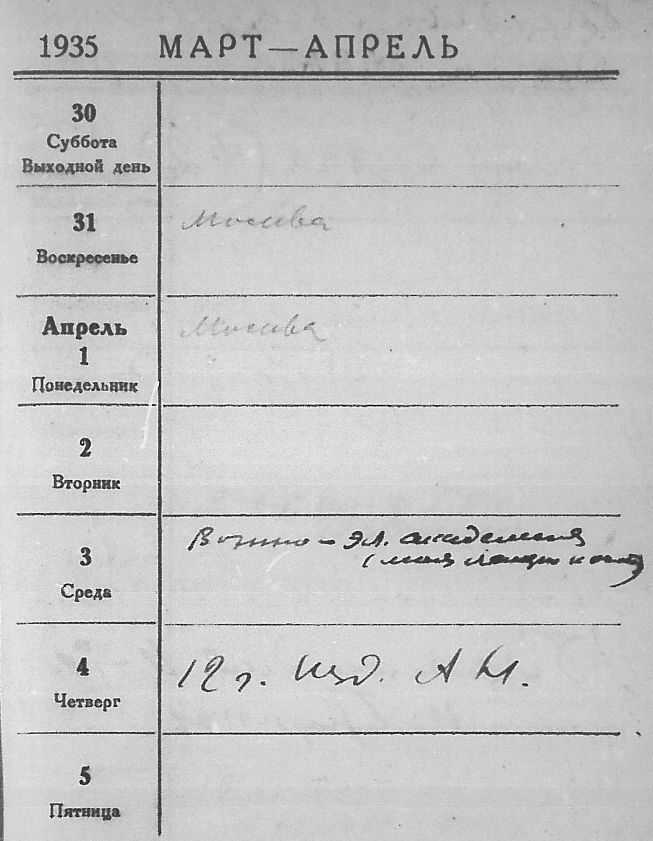 1935 МАРТ — АПРЕЛЬ
30
Суббота
Выходной день
31
Воскресенье
Москва
Апрель
1
Понедельник
Москва
2
Вторник
3
Среда
Военно - эл. академия
(моя лекция
4
Четверг
12 ч. Изд. А Н.
5
Пятница